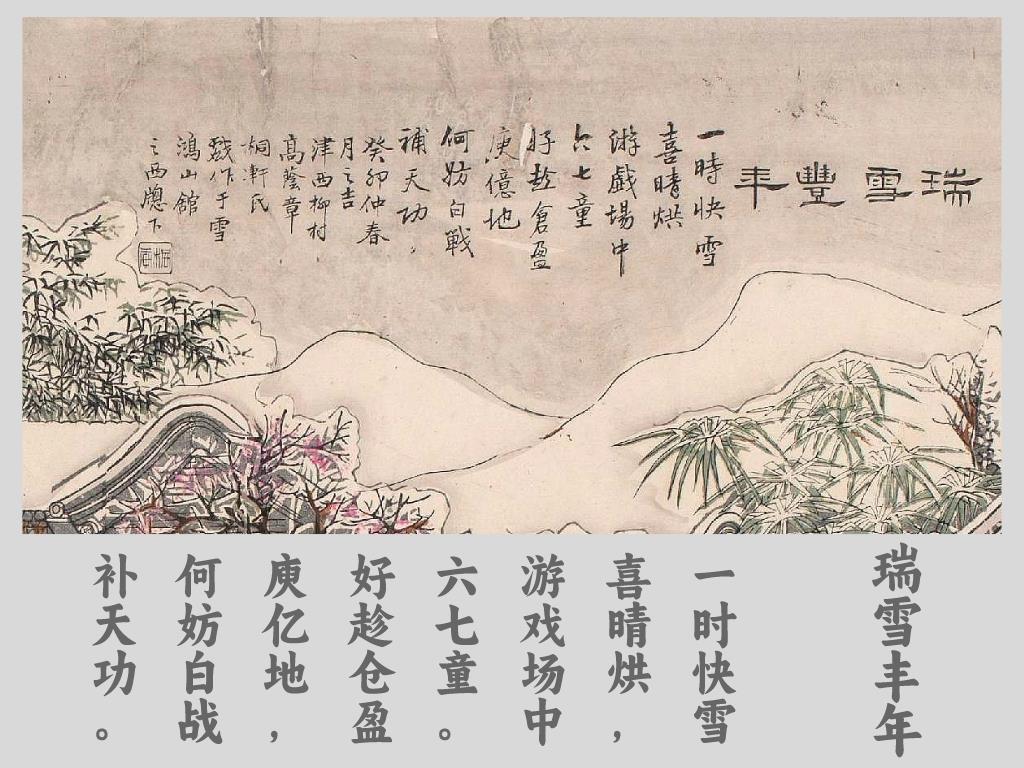 瑞雪豐年
一時快雪
喜晴烘
游戲場中
六七童
好趁倉盈
庾億地
何妨白戰
補天功，
癸卯仲春
月之吉
津西柳村
高蔭章，
桐軒氏
戲作于雪
鴻山館
之西牕下
瑞雪丰年
一时快雪
喜晴烘，
游戏场中
六七童。
好趁仓盈
庾亿地，
何妨白战
补天功。